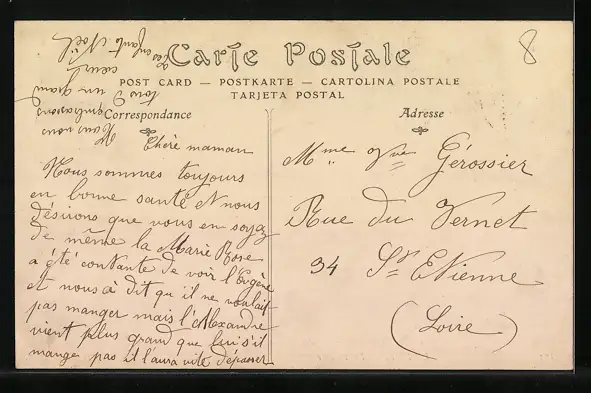 8
Carte Postale
POST CARD — POSTKARTE — CARTOLINA POSTALE
TARJETA POSTAL
Correspondance
Chère maman
Nous sommes toujours
en bonne santé et nous
désirons que vous en soyez
de même la Marie Rose
a été contante de voir l'Eugène
et nous à dit qu'il ne voulait
pas manger mais l'Alexandre
vient plus grand que lui s'il
mange pas il l'aura vite dépasser
Nous vous
embrassons
tous d'un grand
cœur
Les enfants Noël
Adresse
Mme Vve Gérossier
Rue du Vernet
34 St Etienne
(Loire)